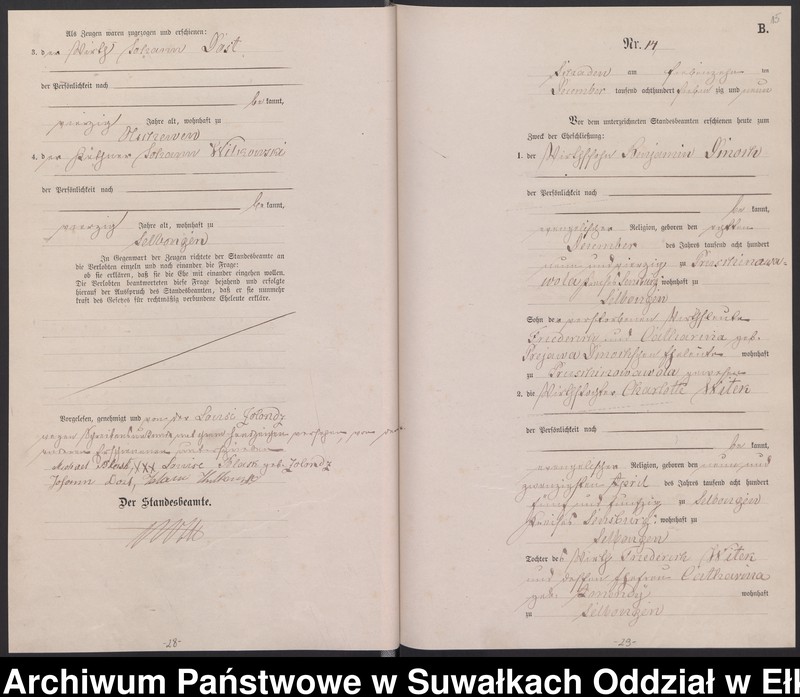 Als Zeugen waren zugezogen und erschienen:
3. der Wirth Johann Dast
der Persönlichkeit nach
bekannt,
vierzig Jahre alt, wohnhaft zu
Olschewen
4. der Käthner Johann Witkowski
der Persönlichkeit nach
bekannt,
vierzig Jahre alt, wohnhaft zu
Selbongen
In Gegenwart der Zeugen richtete der Standesbeamte an
die Verlobten einzeln und nach einander die Frage:
ob sie erklären, daß sie die Ehe mit einander eingehen wollen.
Die Verlobten beantworteten diese Frage bejahend und erfolgte
hierauf der Ausspruch des Standesbeamten, daß er sie nunmehr
kraft des Gesetzes für rechtmäßig verbundene Eheleute erkläre.
Vorgelesen, genehmigt und von der Louise
wegen mit Handzeichen versehen, von den
anderen Erschienenen unterschrieben
Michael XXX Louise geb.
Johann Dast, Johann
Der Standesbeamte.
-28-
15
B.
Nr. 14
am siebenzehn ten
December tausend achthundert sieben zig und neun
Vor dem unterzeichneten Standesbeamten erschienen heute zum
Zweck der Eheschließung:
1. der Wirthssohn Benjamin Dmoch
der Persönlichkeit nach
bekannt,
evangelischer Religion, geboren den ersten
December des Jahres tausend acht hundert
neun und vierzig zu Pruschinowa-
wola Kreises Sensburg wohnhaft zu
Selbongen
Sohn der verstorbenen Wirthsleute
Friedrich und Catharina geb.
Prejawa Dmochschen Eheleute wohnhaft
zu Pruschinowawola gewesen
2. die Wirthstochter Charlotte Witek
der Persönlichkeit nach
bekannt,
evangelischer Religion, geboren den neun und
zwanzigsten April des Jahres tausend acht hundert
fünf und fünfzig zu Selbongen
Kreises Sensburg wohnhaft zu
Selbongen
Tochter des Wirth Friedrich Witek
und dessen Ehefrau Catharina
geb. wohnhaft
zu Selbongen
-29-
Archiwum Państwowe w Suwałkach Oddział w Eł